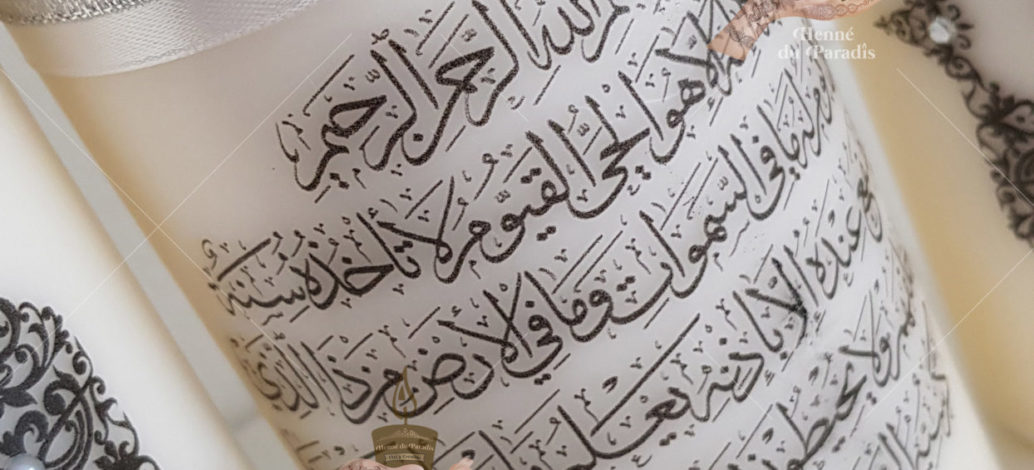 Henné
du Paradis
الله الرحمن الرحيم
هو الحي القيوم لا تأخذه سنة
ما في السموات وما في الأرض من ذا الذي
عنده إلا بإذنه يعلم
ولا يحيطون
Henné du Paradis